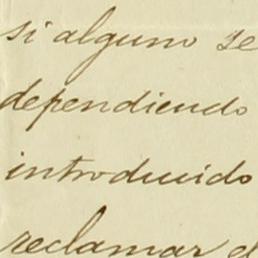 si alguno se
dependiendo
introducido
reclamar el